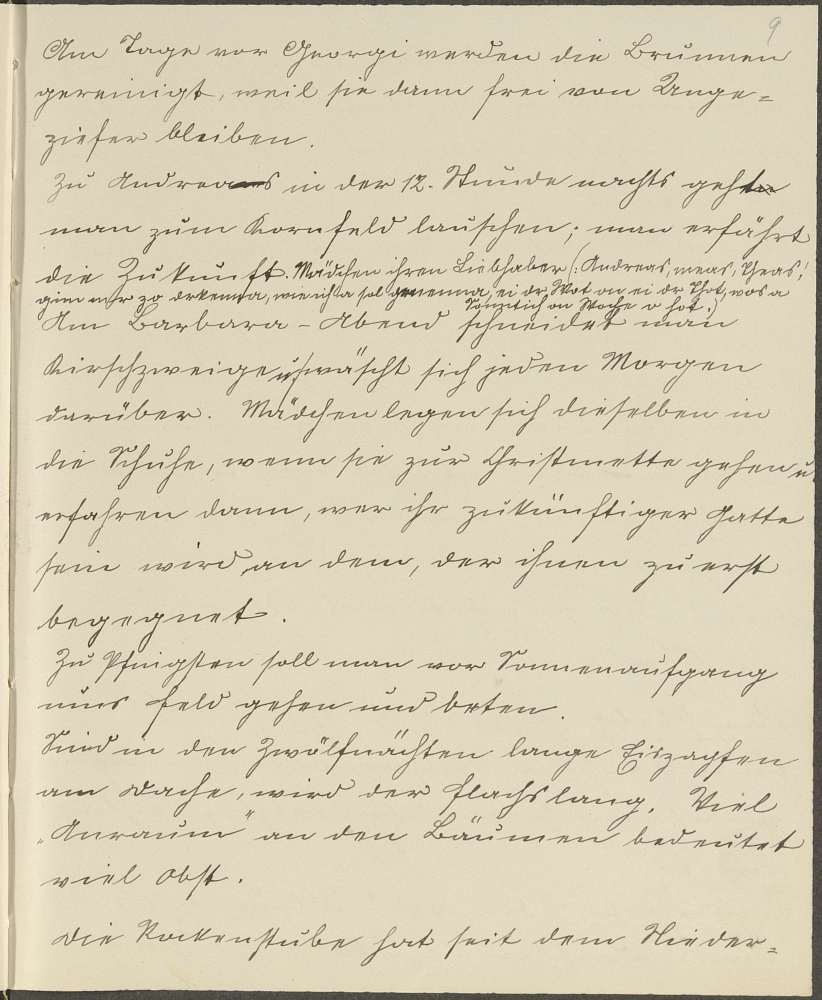 9
Am Tage vor Georgi werden die Brunnen
gereinigt, weil sie dann frei von Unge-
ziefer bleiben.
Zu Andreas in der 12. Stunde nachts geht
man zum Kornfeld lauschen; man erfährt
die Zukunft. Mädchen ihren Liebhaber (: Andreas, meas, Theas,!
gim mr zo drkenna, wie ich'a sol genenna, ei dr Wot on ei dr Thot, wos a
Sonzitich on Woche o hot.)
Am Barbara-Abend schneidet man
Kirschzweige u. wäscht sich jeden Morgen
darüber. Mädchen legen sich dieselben in
die Schuhe, wenn sie zur Christmette gehen u.
erfahren dann, wer ihr zukünftiger Gatte
sein wird, an dem, der ihnen zuerst
begegnet.
Zu Pfingsten soll man vor Sonnenaufgang
aufs Feld gehen und beten.
Sind in den Zwölfnächten lange Eiszapfen
am Dache, wird der Flachs lang. Viel
„Anraum" an den Bäumen bedeutet
viel Obst.
Die Rockenstube hat seit dem Nieder-